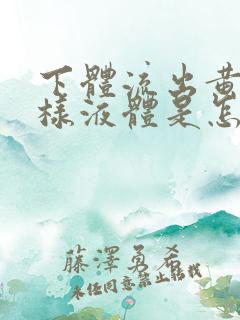 下體流出黄
樣液體是怎
藤澤勇希
未经同意禁止转载